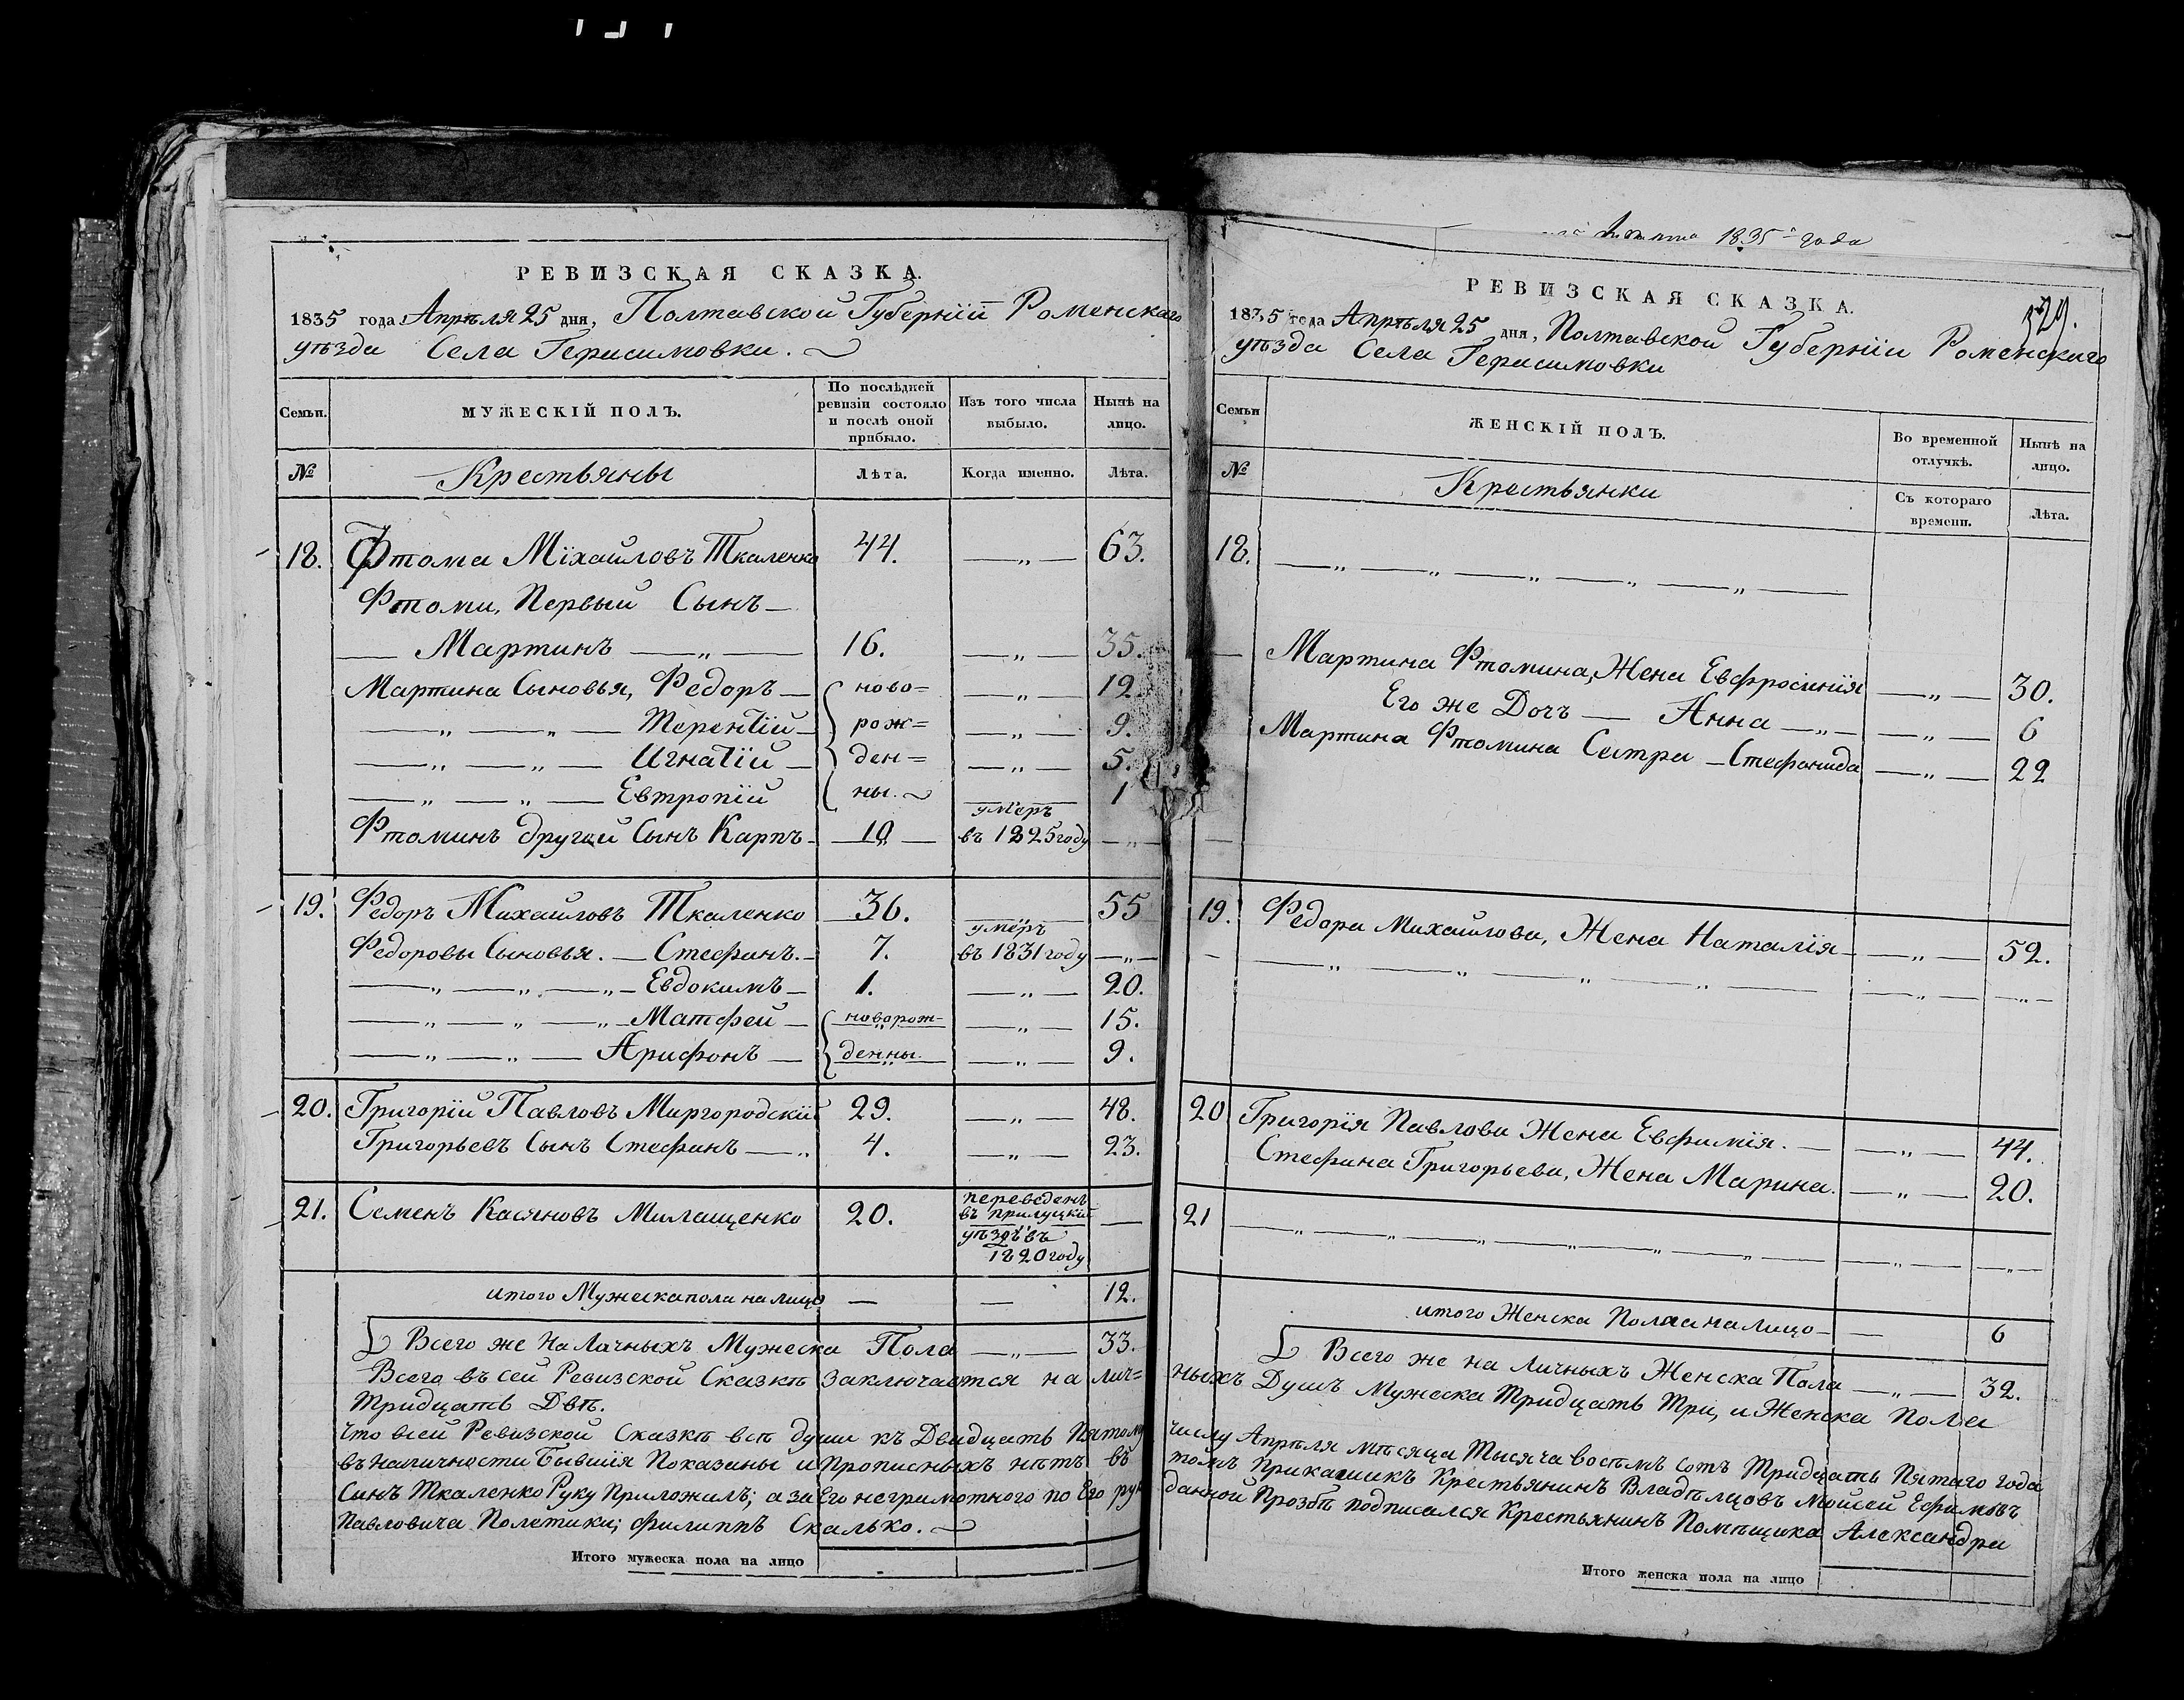 РЕВИЗСКАЯ СКАЗКА.
1835 года Апрѣля 25 дня, Полтавской Губерніи Роменскаго
уѣзда Села Герасимовки.
Семьи.
МУЖЕСКІЙ ПОЛЪ.
По послѣдней
ревизіи состояло
и послѣ оной
прибыло.
Изъ того числа
выбыло.
Нынѣ на
лицо.
№
Крестьяны
Лѣта.
Когда именно.
Лѣта.
18. Фтома Міхайловъ Ткаленко 44. —„— 63.
Фтоми, Первый Сынъ —
— Мартинъ —„— 16. —„— 35.
Мартина Сыновья, Федоръ — ново= —„— 12
—„—„— Терентій — рож= —„— 9.
—„—„— Игнатій — ден= —„— 5.
—„—„— Евтропій ны. —„— 1
Фтоминъ другой Сынъ Карпъ — 10 — умеръ въ 1825 году —„—
19. Федоръ Михайловъ Ткаленко 36. —„— 55
Федоровы Сыновья. — Стефанъ. — 7. умеръ въ 1831 году —„—
—„—„—„— Евдокимъ — 1. —„— 20.
—„—„—„— Матфей — новорож- —„— 15.
—„—„— Арифонъ — денны. —„— 9.
20. Григорій Павловъ Миргородскій 29. —„— 48.
Григорьевъ Сынъ Стефанъ —„ 4. —„— 23.
21. Семенъ Касяновъ Милащенко 20. переведенъ
въ прилуцкій
уѣздъ въ
1820 году —
итого Мужеска пола на лицо — — 12.
Всего же На Личныхъ Мужеска Пола —„— 33.
Всего въ сей Ревизской Сказкѣ Заключается на лич=
Тридцать Двѣ.
Что всей Ревизской Сказкѣ всѣ души къ Двадцать Пятому
въ наличности Бывшія Показаны и Прописныхъ нѣтъ въ
Сынъ Ткаленко Руку Приложилъ; а за Его неграмотного по Его рук
Павловича Полетики; филиппъ Скалько.
Итого мужеска пола на лицо
1835 года
РЕВИЗСКАЯ СКАЗКА.
529.
1835 года Апрѣля 25 дня, Полтавской Губерніи Роменскаго
уѣзда Села Герасимовки
Семьи
ЖЕНСКІЙ ПОЛЪ.
Во временной
отлучкѣ.
Нынѣ на
лицо.
№
Крестьянки
Съ котораго
времени.
Лѣта.
18. —„—„—„—„—„—
Мартина Фтомина, Жена Евфросинія —„— 30.
Его же Дочъ — Анна —„— —„— 6
Мартина Фтомина Сестра — Стефанида —„— 22
19. Федора Михайлова, Жена Наталія — —„— 52.
—„—„—„—„— —„— —„—
20 Григорія Павлова Жена Евфимія. — —„— 44.
Стефана Григорьева, Жена Марина. —„— 20.
21 —„—„—„—„—„—„— —„— —„—
итого Женска Пола на лицо — — 6
Всего же на Личныхъ Женска Пола —„— 32.
ныхъ Душъ Мужеска Тридцать Три, и Женска Пола
числу Апрѣля мѣсяца Тысяча восемъ сотъ Тридцать Пятаго года
томъ Прикащикъ Крестьянинъ Владѣлцовъ Мойсей Ефимовъ
данной Прозбѣ подписался Крестьянинъ Помѣщика Александра
Итого женска пола на лицо